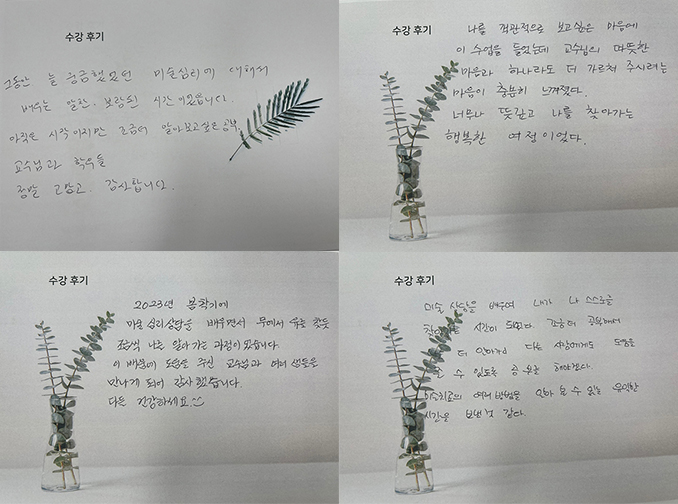 수강 후기
그동안 늘 궁금했었던 미술심리에 대해서
배우는 알찬, 보람된 시간이었습니다.
아직은 시작이지만 조금더 알아보고싶은 공부.
교수님과 학우들
정말 고맙고, 감사합니다.
수강 후기
나를 객관적으로 보고싶은 마음에
이 수업을 들었는데 교수님의 따뜻한
마음과 하나라도 더 가르쳐 주시려는
마음이 충분히 느껴졌다.
너무나 뜻깊고 나를 찾아가는
행복한 여정이었다.
수강 후기
2023년 봄학기에
미술심리상담을 배우면서 무에서 유를 찾듯
조금씩 나를 알아가는 과정이었습니다.
이 배움에 도움을 주신 교수님과 여러 샘들을
만나게 되어 감사했습니다.
다들 건강하세요.
수강 후기
미술 상담을 배우며 내가 나 스스로를
시간이 되었다. 조금 더 공부해서
더 다른 사람에게도 도움을
수 있도록 해야겠다.
미술치료의 여러 방법을 알아 볼 수 있는 유익한
시간을 보낸것 같다.